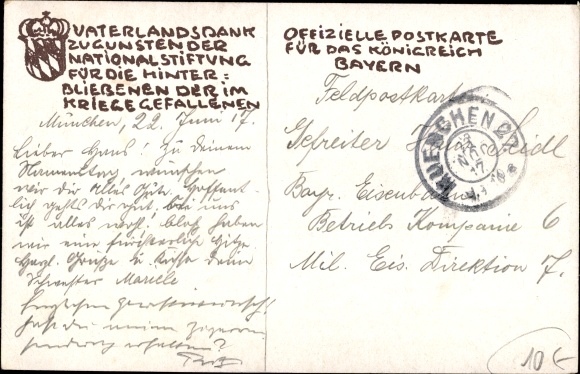 VATERLANDSDANK
ZUGUNSTEN DER
NATIONALSTIFTUNG
FÜR DIE HINTER=
BLIEBENEN DER IM
KRIEGE GEFALLENEN
München, 22. Juni 17.
Lieber Hans! Zu deinem
Namenstag wünschen
wir dir alles Gute. Hoffent-
lich gehts dir gut, bei uns
ist alles wohl! bloß haben
wir eine fürchterliche Hitze
Herzl. Grüße u. Küsse deine
Schwester
Herzlichen
Hast du meine
sendung erhalten?
OFFIZIELLE POSTKARTE
FÜR DAS KÖNIGREICH
BAYERN
Feldpostkarte
Gefreiter Seidl
Bayr. Eisenbahn
Betriebs Kompanie 6
Mil. Eis. Direktion 7.
MUENCHEN 2
10€